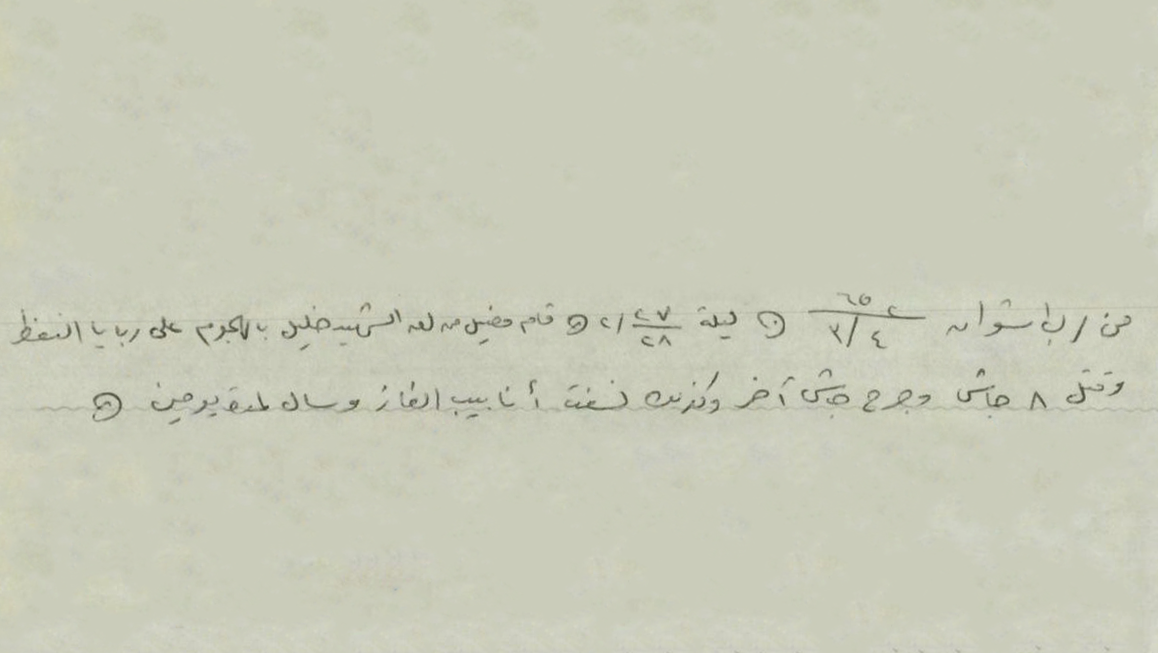 من / ب اشوان ٢ ٦٥ ٣/٤ ليلة ٢٧/٢٨ /٢ قام فصيل من لعد الشهيد خليل بالهجوم على ربايا النفط
وقتل ٨ جاش وجرح جاش آخر وكذلك نسفت أنابيب الغاز وسال لمدة يومين